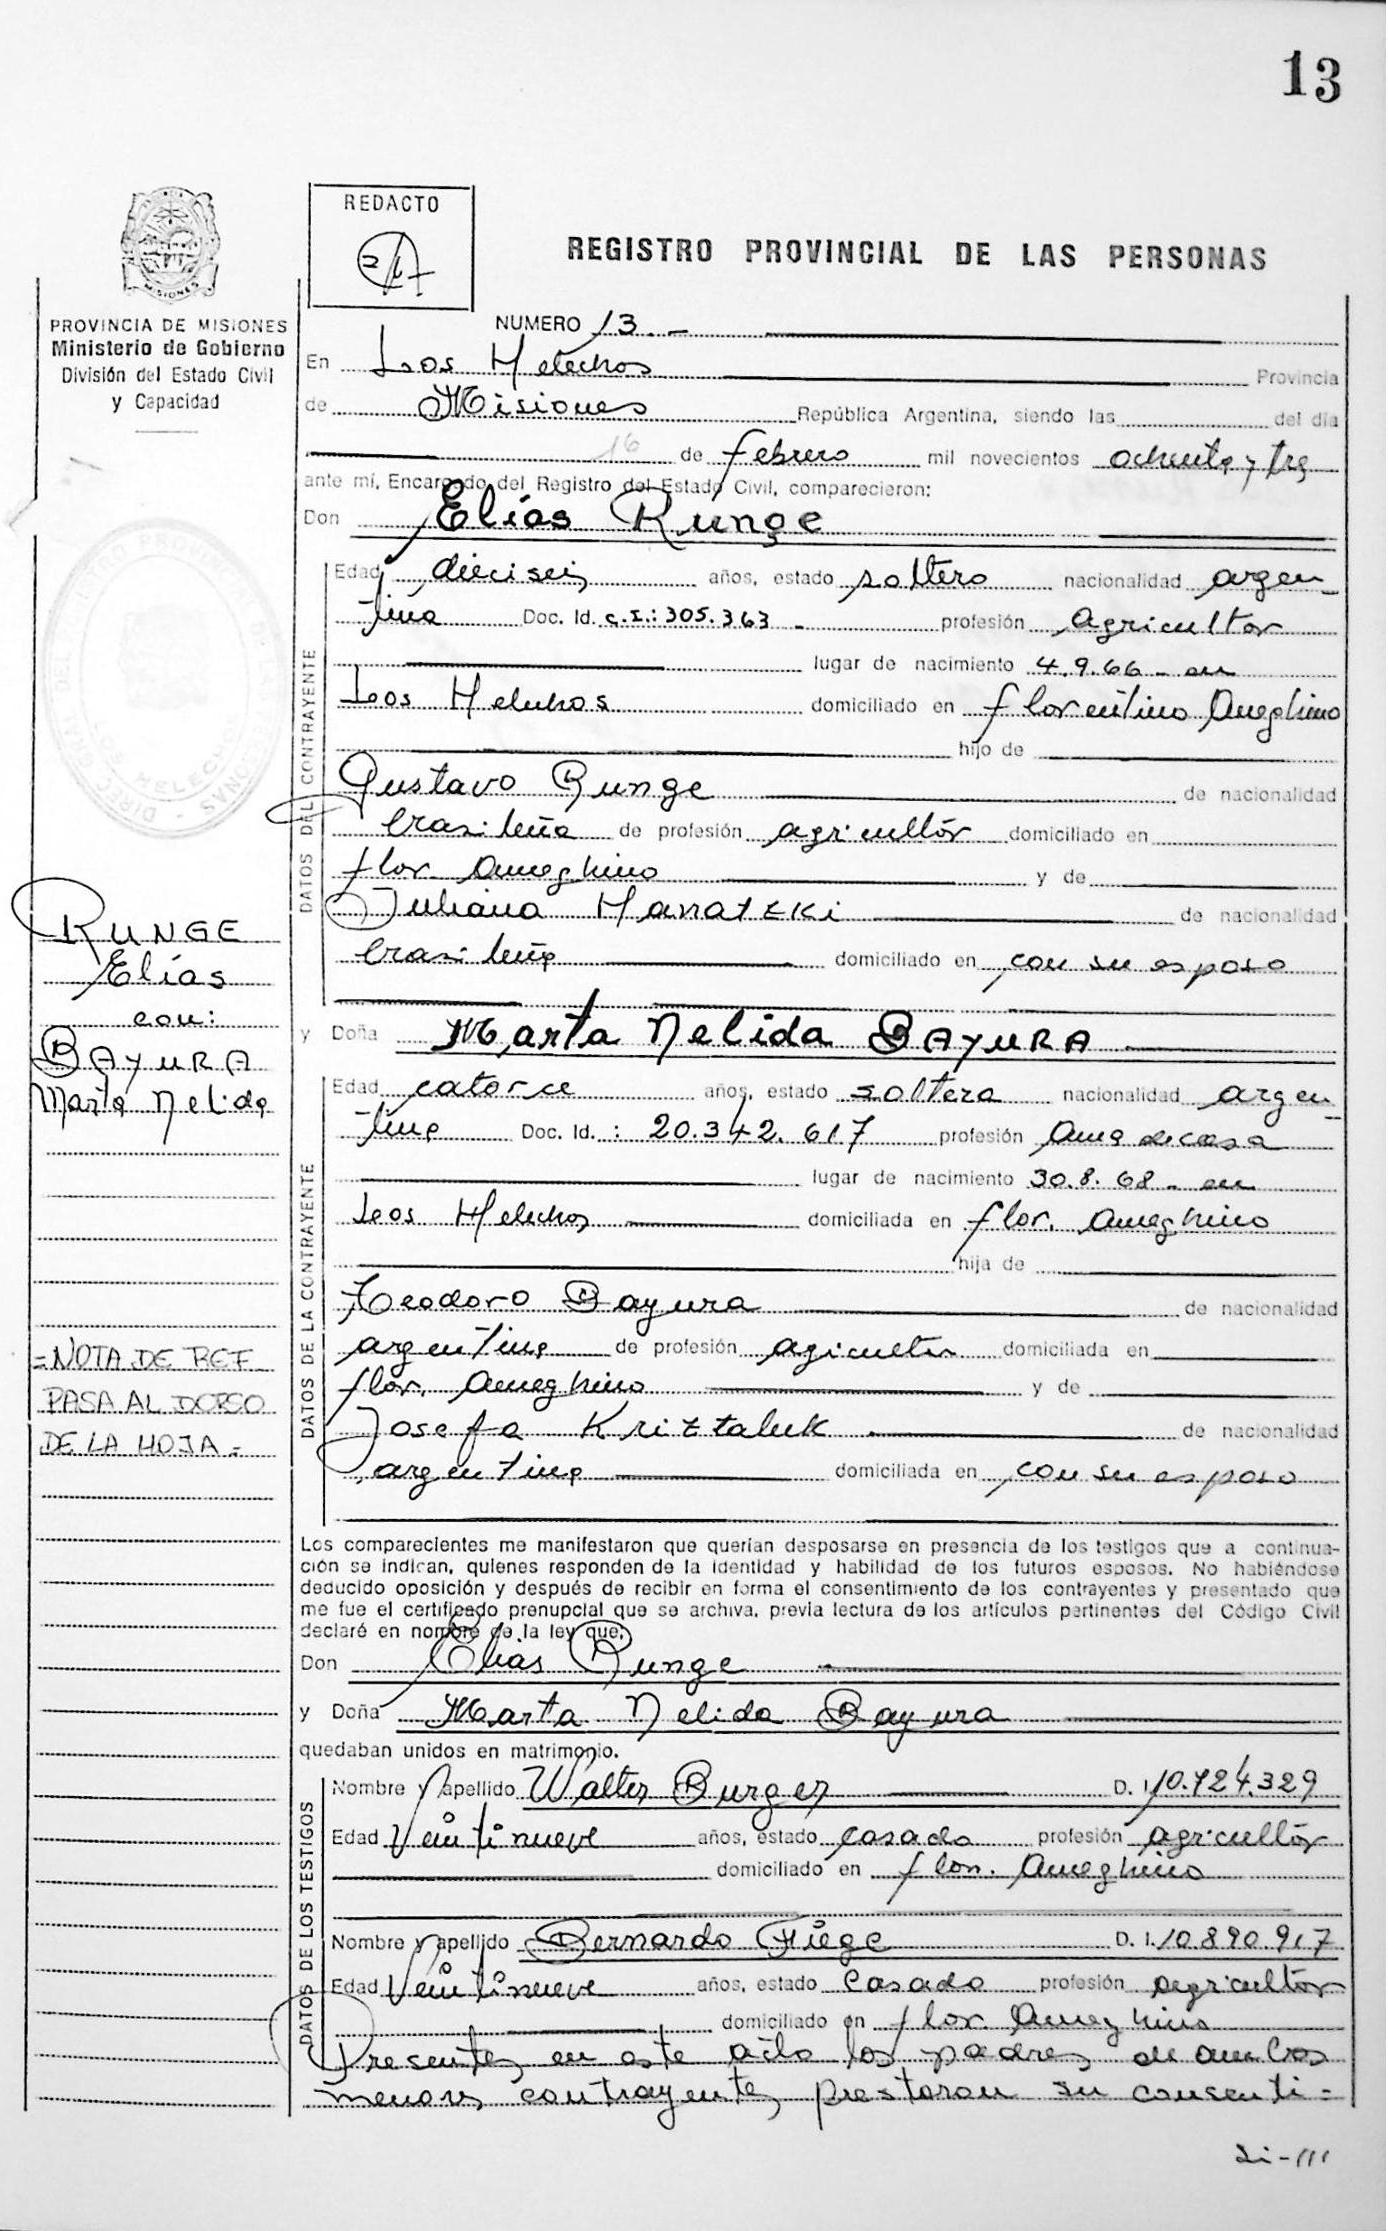 13
REDACTO
REGISTRO PROVINCIAL DE LAS PERSONAS
MISIONES
PROVINCIA DE MISIONES
Ministerio de Gobierno
División del Estado Civil
y Capacidad
NUMERO 13.-
En Los Helechos Provincia
de Misiones República Argentina, siendo las del día
16 de febrero mil novecientos ochenta y tres
ante mí, Encargado del Registro del Estado Civil, comparecieron:
Don Elías Runge
DATOS DEL CONTRAYENTE
Edad dieciseis años, estado soltero nacionalidad argen-
tina Doc. Id. c.I.: 305.363 - profesión Agricultor
lugar de nacimiento 4.9.66 - en
Los Helechos domiciliado en florentino Ameghino
hijo de
Gustavo Runge de nacionalidad
brasileña de profesión agricultor domiciliado en
flor. Ameghino y de
Juliana Hanatzki de nacionalidad
brasileña domiciliado en con su esposo
RUNGE
Elías
con:
BAYURA
Marta Nelida
y Doña Marta Nelida BAYURA
DATOS DE LA CONTRAYENTE
Edad catorce años, estado soltera nacionalidad argen-
tina Doc. Id. : 20.342.617 profesión Ama de casa
lugar de nacimiento 30.8.68 - en
Los Helechos domiciliada en flor. Ameghino
hija de
Teodoro Bayura de nacionalidad
argentina de profesión agricultor domiciliada en
flor. Ameghino y de
Josefa Kriztaluk de nacionalidad
argentina domiciliada en con su esposo
=NOTA DE REF
PASA AL DORSO
DE LA HOJA=
Los comparecientes me manifestaron que querían desposarse en presencia de los testigos que a continua-
ción se indican, quienes responden de la identidad y habilidad de los futuros esposos. No habiéndose
deducido oposición y después de recibir en forma el consentimiento de los contrayentes y presentado que
me fue el certificado prenupcial que se archiva, previa lectura de los artículos pertinentes del Código Civil
declaré en nombre de la ley que:
Don Elias Runge
y Doña Marta Nelida Bayura
quedaban unidos en matrimonio.
DATOS DE LOS TESTIGOS
Nombre y apellido Walter Burger D. I. 10.724.329
Edad Veintinueve años, estado casado profesión agricultor
domiciliado en flor. Ameghino
Nombre y apellido Bernardo Fiege D. I. 10.890.917
Edad Veintinueve años, estado Casado profesión agricultor
domiciliado en flor. Ameghino
Presentes en este acto los padres de ambos
menores contrayentes prestaron su consenti=